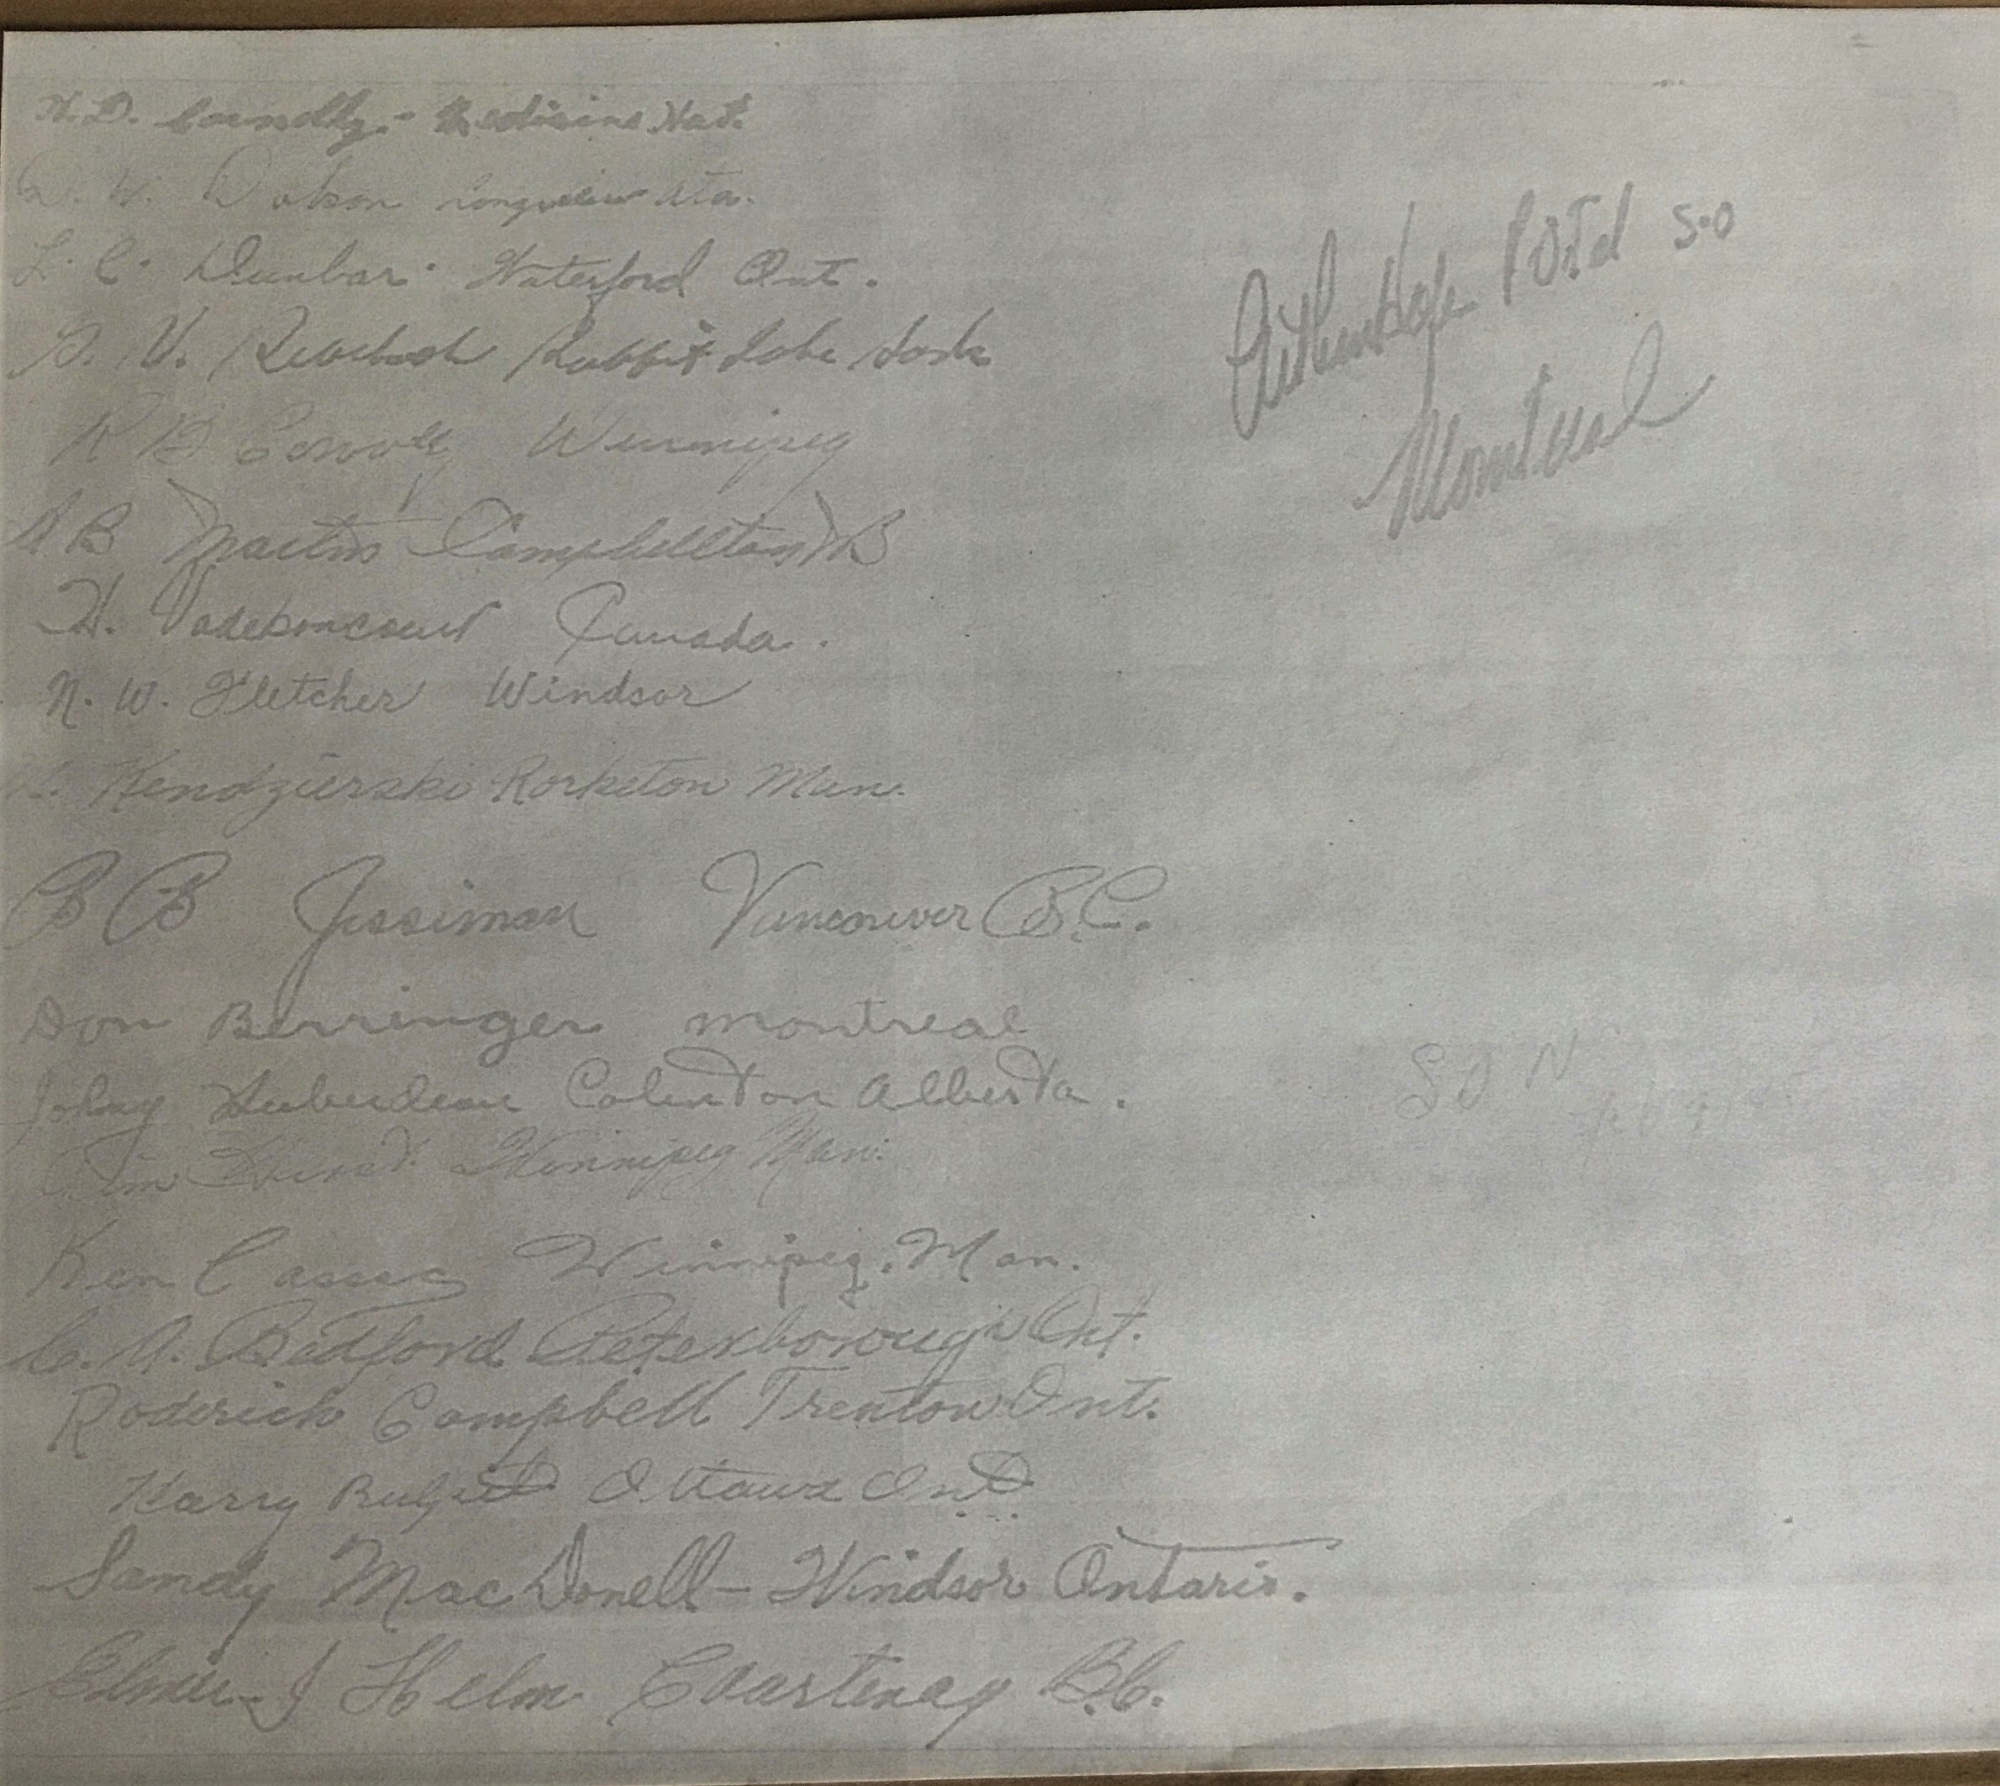 H.D. Connolly - Medicine Hat.
W. Dobson Longview Alta.
L. C. Dunbar Waterford Ont.
V. Rabbit Lake Sask
R B Winnipeg
A B Martin Campbellton N B
H. Vadeboncoeur Canada.
N. W. Fletcher Windsor
Kendzierski Rorketon Man.
B B Jessiman Vancouver B.C.
Don Berringer Montreal
Johny Huberdeau Colinton Alberta.
Jim Winnipeg Man.
Ken Casey Winnipeg. Man.
C. A. Bedford Peterborough Ont.
Roderick Campbell Trenton Ont.
Harry Ottawa Ont.
Sandy MacDonell - Windsor Ontario.
Elmer J Helm Courtenay B.C.
Arthur Hope S.O
Montreal